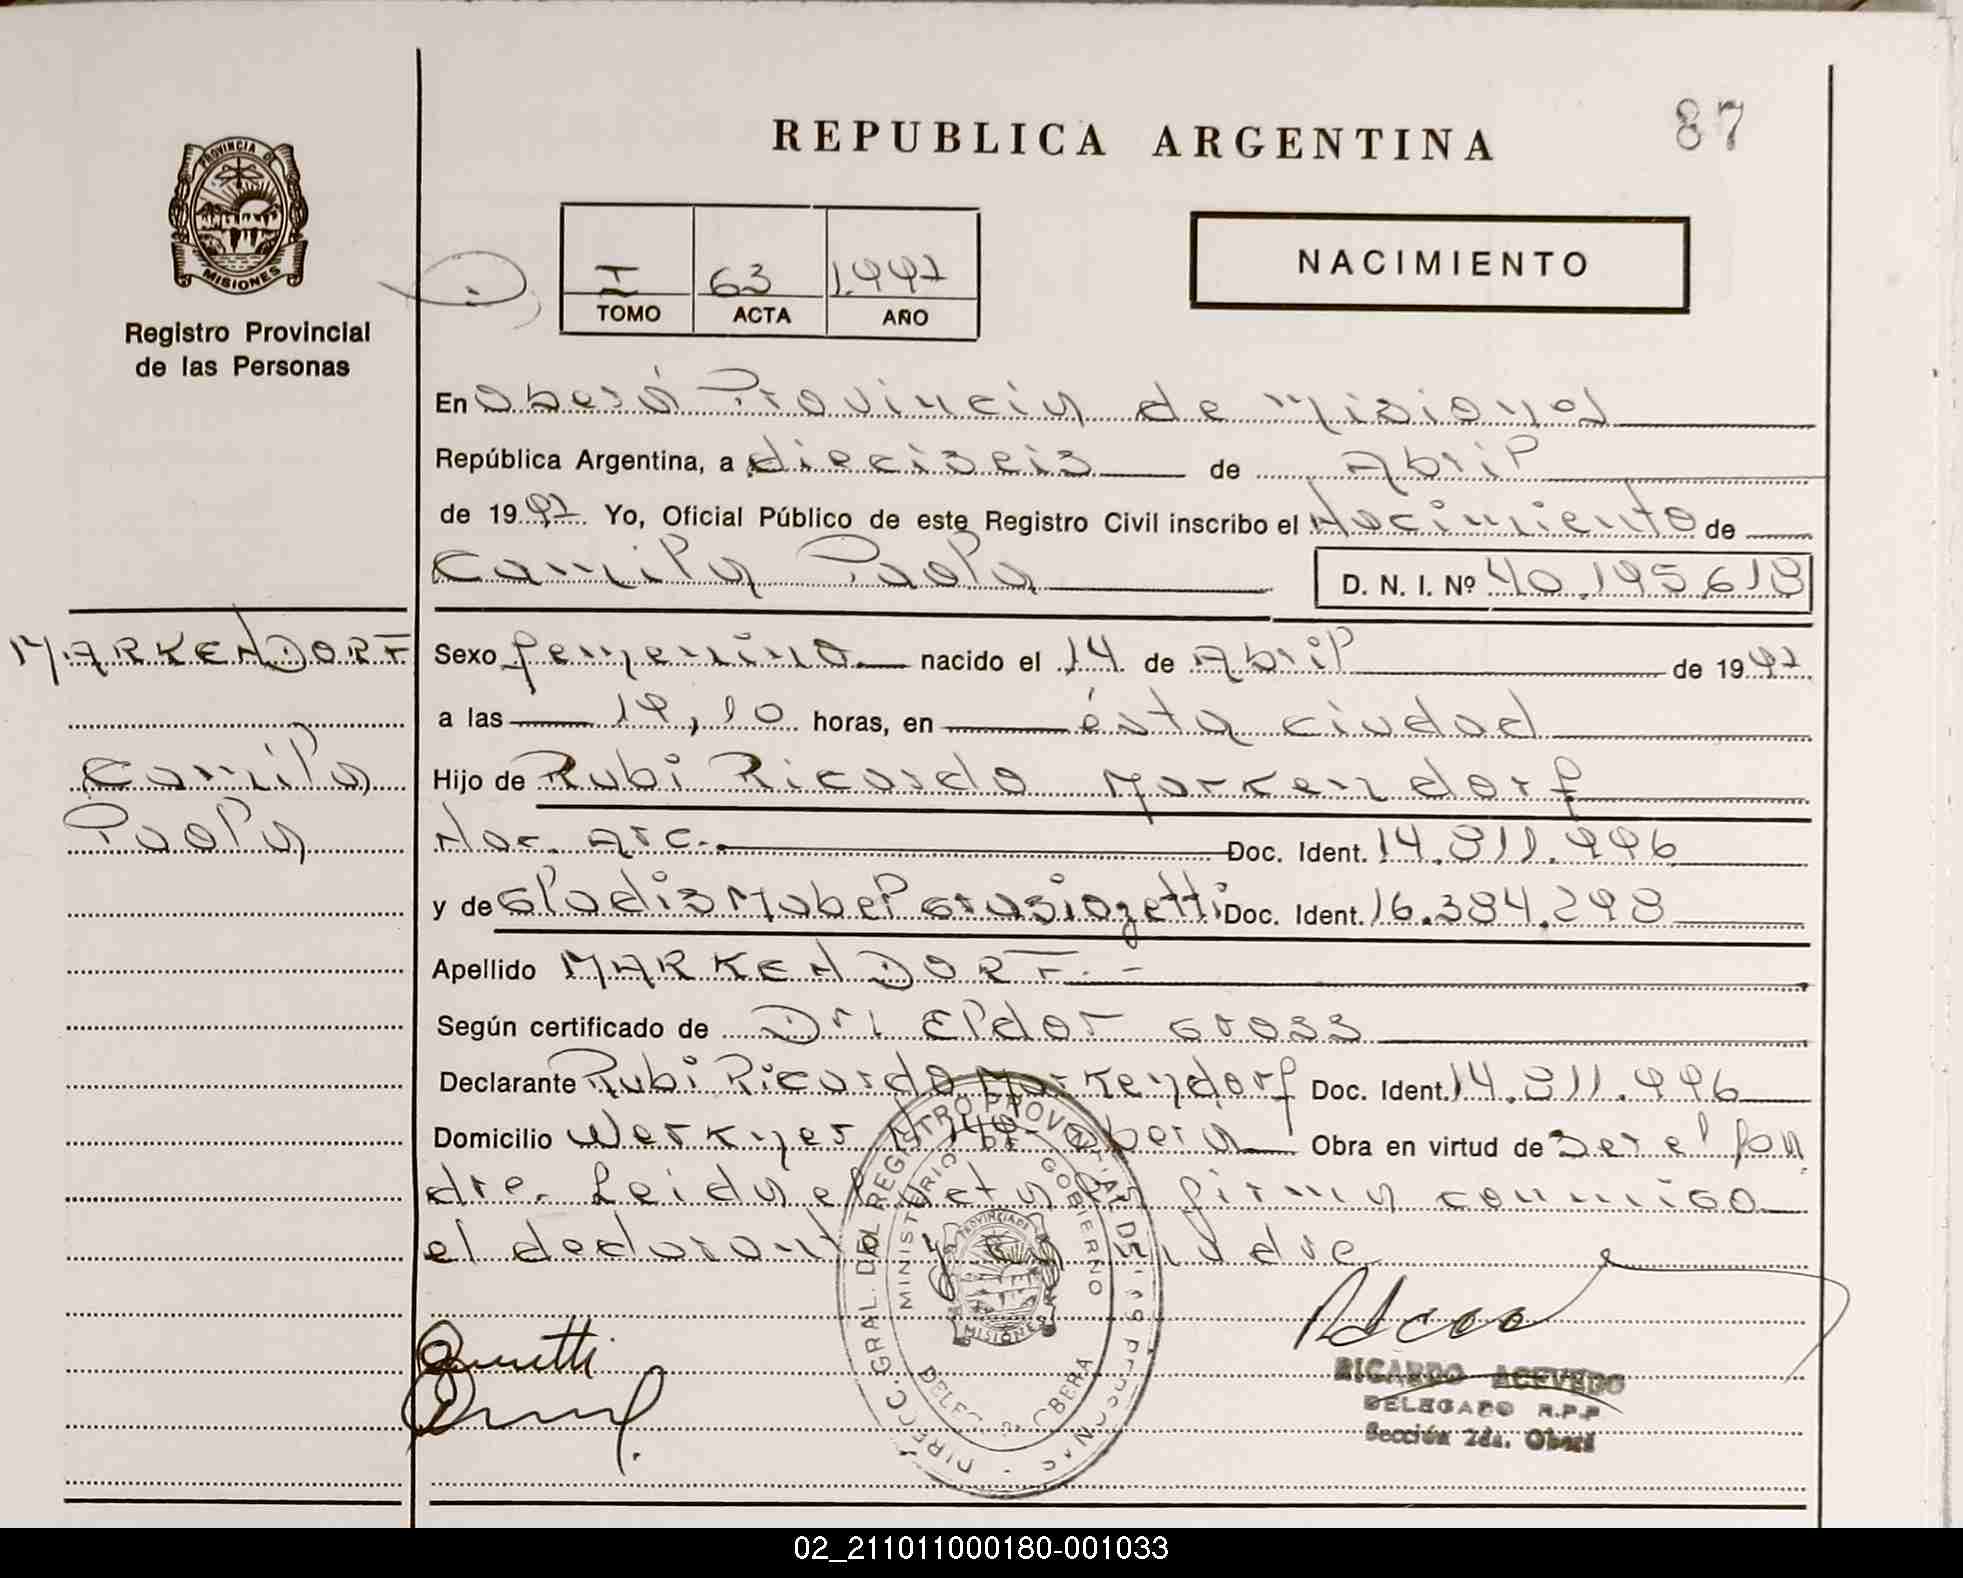 REPUBLICA ARGENTINA
87
PROVINCIA DE
MISIONES
Registro Provincial
de las Personas
I 63 1.997
TOMO ACTA AÑO
NACIMIENTO
En Oberá Provincia de Misiones
República Argentina, a dieciseis de Abril
de 1997 Yo, Oficial Público de este Registro Civil inscribo el Nacimiento de
Camila Paola D. N. I. Nº 40.195.618
MARKENDORF
Camila
Paola
Sexo femenino nacido el 14 de Abril de 1997
a las 19,10 horas, en ésta ciudad
Hijo de Rubi Ricardo Markendorf
Nac. Arc. Doc. Ident. 14.811.996
y de Gladis Mabel Doc. Ident. 16.384.298
Apellido MARKENDORF.-
Según certificado de Dr. Eldor Gross
Declarante Rubi Ricardo Markendorf Doc. Ident. 14.811.996
Domicilio Oberá Obra en virtud de ser el pa
dre. Leida el acta la firma conmigo
el declarante y la madre
DIRECC. GRAL. DEL REGISTRO PROVINCIAL DE
MINISTERIO GOBIERNO
PROVINCIA DE
MISIONES
OBERA
RICARDO ACEVEDO
DELEGADO R.P.P
Sección 2da. Oberá
02_211011000180-001033